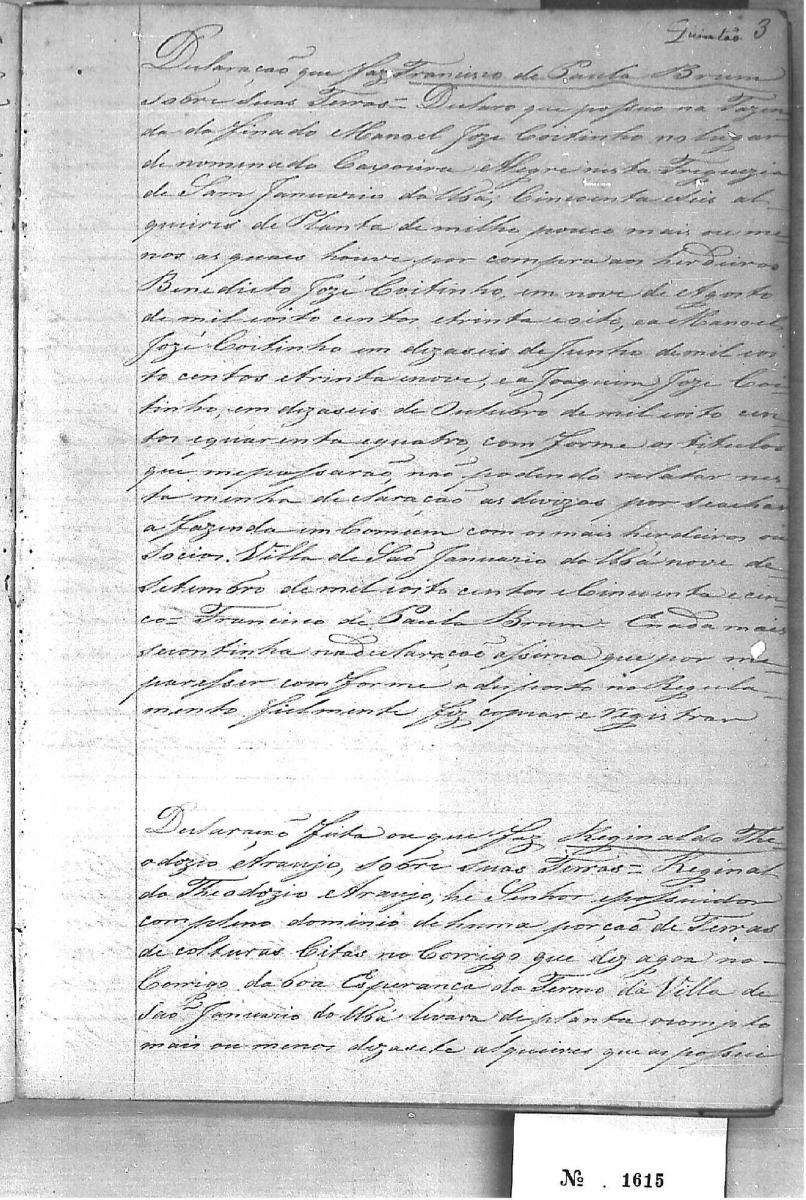 Quintão 3
Declaração que faz Francisco de Paula Brum
sobre suas Terras = Declaro que possuo na Fazen
da do finado Manoel Joze Coitinho no lugar
de nomenado Caxoeira Alegre nesta Freguezia
de Sam Januario do Ubá; Cincoenta e seis al-
queires de Planta de milho pouco mais ou me-
nos as quaes houve por compra aos herdeiros
Benedicto Jozé Coitinho, em nove de Agosto
de mil oito centos e trinta e oito, e a Manoel
Jozé Coitinho em dezaseis de Junho de mil oi-
to centos e trinta e nove, e a Joaquim Joze Coi-
tinho, em dezaseis de Outubro de mil oito cen-
tos e quarenta e quatro, com forme os titulos
que me passarão, não podendo relatar nes
ta minha declaração as devizas por se achar
a fazenda em Comum com os mais herdeiros ou
Socios. Villa de São Januario do Ubá nove de
Setembro de mil oito centos e Cincoenta e cin-
co = Francisco de Paula Brum. E nada mais
se continha na declaração assima que por me
paresser com forme o desposto no Regula-
mento fielmente fiz copiar e registrar
Declaração feita ou que faz Reginaldo The
odozio Araujo, sobre suas Terras = Reginal
do Theodozio Araujo, he Senhor e possuidor
com pleno dominio de huma porção de Terras
de colturas Citas no Corrigo que dez agoa no
Corrigo da boa Esperança do Termo da Villa de
São Januario do Ubá levara de planta o computo
mais ou menos dezasete alqueires que as possui
Nº . 1615